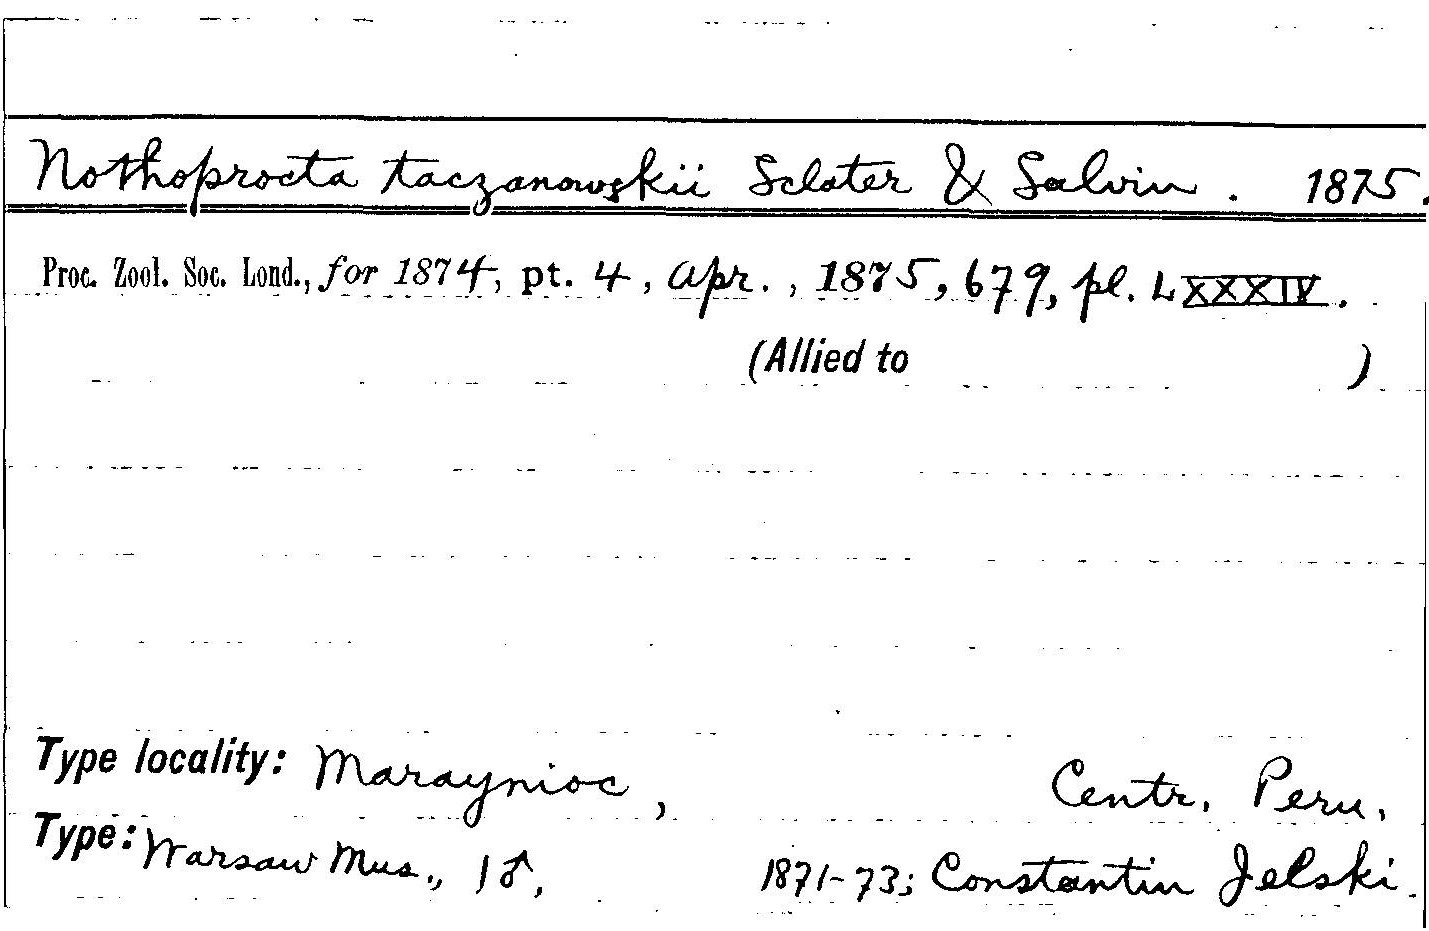 Nothoprocta taczanowskii Sclater & Salvin. 1875.
Proc. Zool. Soc. Lond., for 1874, pt. 4, Apr., 1875, 679, pl. LXXXIV.
(Allied to )
Type locality: Maraynioc, Centr. Peru.
Type: Warsaw Mus., 1♂, 1871-73; Constantin Jelski.